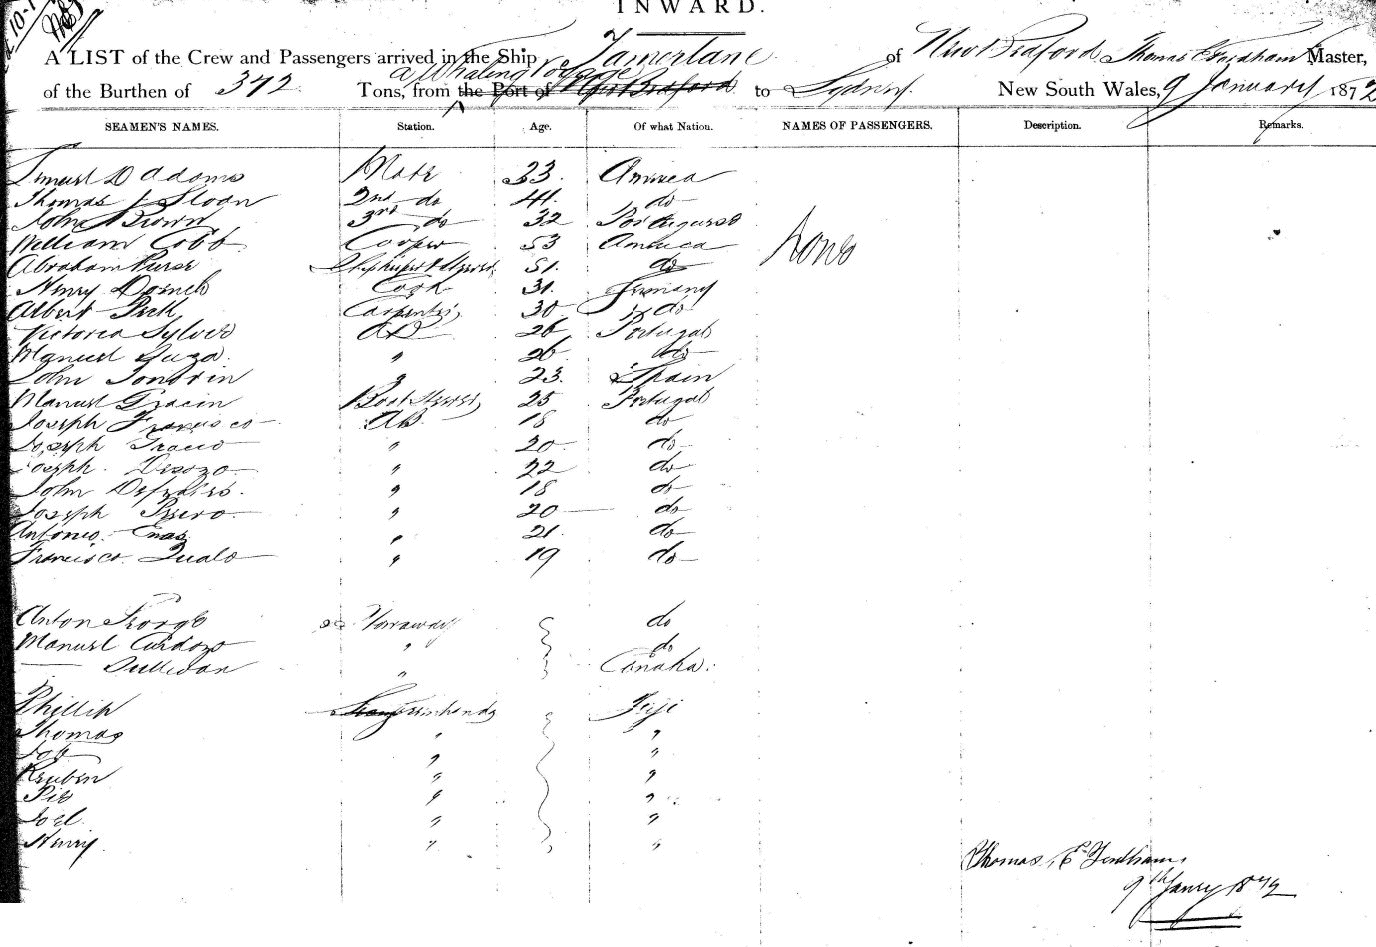 INWARD.
A LIST of the Crew and Passengers arrived in the Ship Tamerlane of New Bedford Thomas Master,
a Whaling Voyage
of the Burthen of 372 Tons, from the Port of New Bedford to Sydney New South Wales, 9 January 1872
SEAMEN'S NAMES. Station. Age. Of what Nation. NAMES OF PASSENGERS. Description. Remarks.
D Adams Mate 33. America
Thomas Sloan 2nd do 41. do
John Brown 3rd do 32 Portuguese
William Cobb Cooper 53 America
None
Abraham 51. do
Henry Cook 31. Germany
Albert Carpenter 30 do
Victoria Sylvia AB 26 Portugal
Manuel " 26 do
John " 23. Spain
Manuel Boat Steerer 25 Portugal
Joseph Francisco AB 18 do
Joseph " 20 do
Joseph " 22 do
John " 18 do
Joseph " 20 do
Antonio Enas " 21. do
Francisco " 19 do
Anton George do
Manuel Cardozo " do
Sullivan " Canaka.
Phillip Fiji
Thomas " "
Job " "
Reuben " "
Pie " "
Joel " "
Henry " "
Thomas E
9th Jany 1872